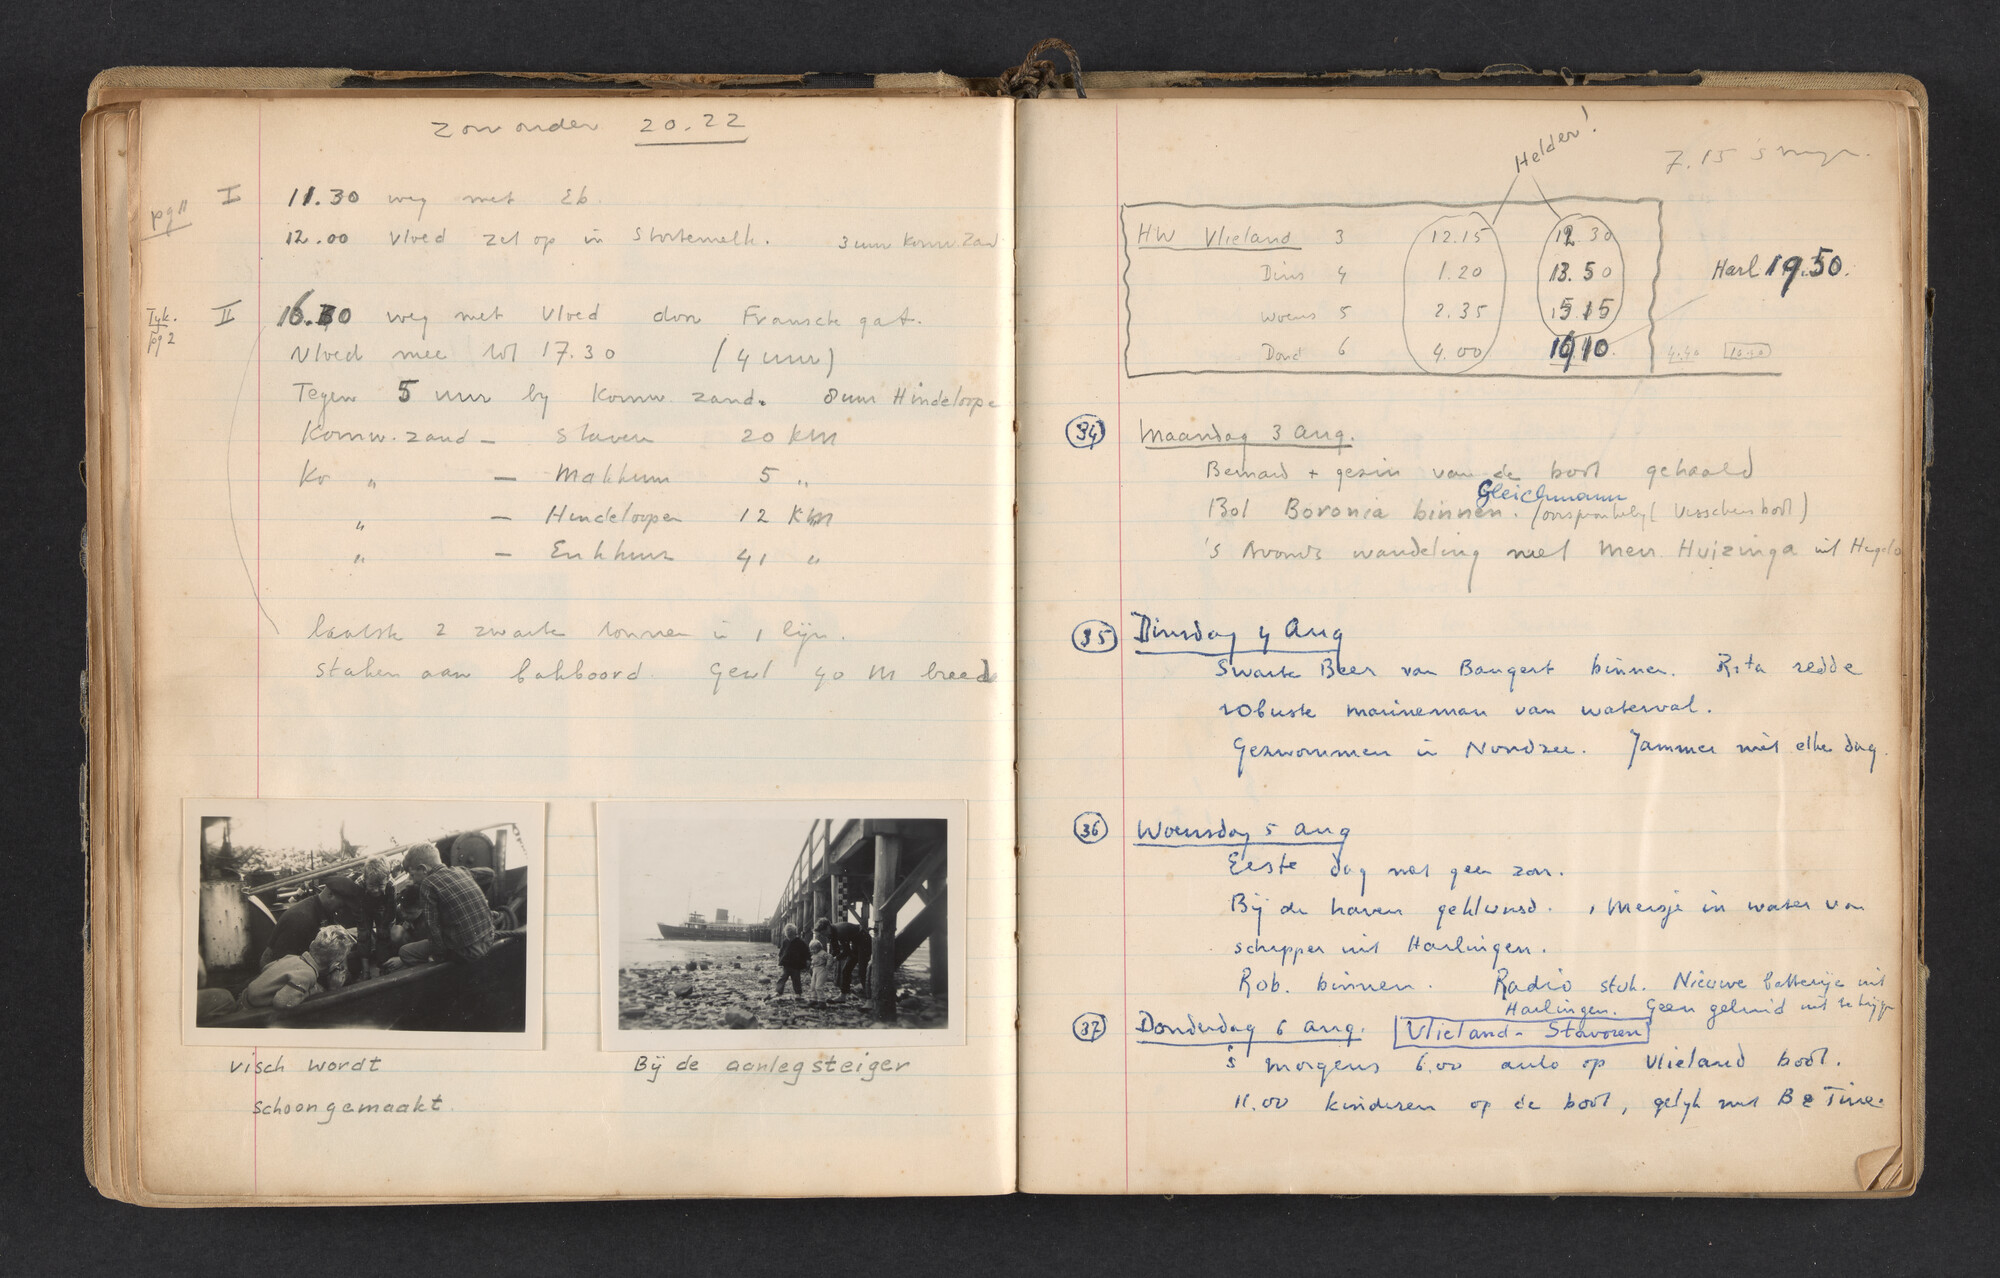 Zon onder 20.22
pg 11
I 11.30 weg met Eb.
12.00 Vloed zet op in Stortemelk. 3 uur Kornw. Zand
Tyk. pg 2
II 16.30 weg met Vloed door Fransche gat.
Vloed mee tot 17.30 (4 uur)
Tegen 5 uur by Kornw zand. 8 uur Hindelope
Kornw. zand — Staveren 20 KM
Ko " — Makkum 5 "
" — Hindeloopen 12 KM
" — Enkhuiz 41 "
laatste 2 zwarte tonnen in 1 lijn.
Staken aan bakboord. Geul 40 M breed
visch wordt
schoongemaakt.
Bij de aanlegsteiger
Helder!
7.15 's morg.
HW Vlieland 3 12.15 12.30
Dins 4 1.20 13.50
Woens 5 2.35 15.15
Dond 6 4.00 16.10. 4.40
Harl 19.50.
34 Maandag 3 Aug.
Bernard + gezin van de boot gehaald
Gleichmann
Bol Boronia binnen. (oorspronkelijk Visschersboot)
's Avonds wandeling met Men Huizinga uit Hengelo
35 Dinsdag 4 Aug
Swarte Beer van Bangert binnen. Rita redde
robuste marineman van waterval.
Gezwommen in Noordzee. Jammer niet elke dag.
36 Woensdag 5 Aug
Eerste dag met geen zon.
Bij de haven geklunsd. 1 Meisje in water van
schipper uit Harlingen.
Rob. binnen. Radio stuk. Nieuwe batterije uit
Harlingen. Geen geluid uit te krijge
37 Donderdag 6 Aug. Vlieland - Stavoren
's morgens 6.00 auto op Vlieland boot.
11.00 kinderen op de boot, gelyk met Be Tine.